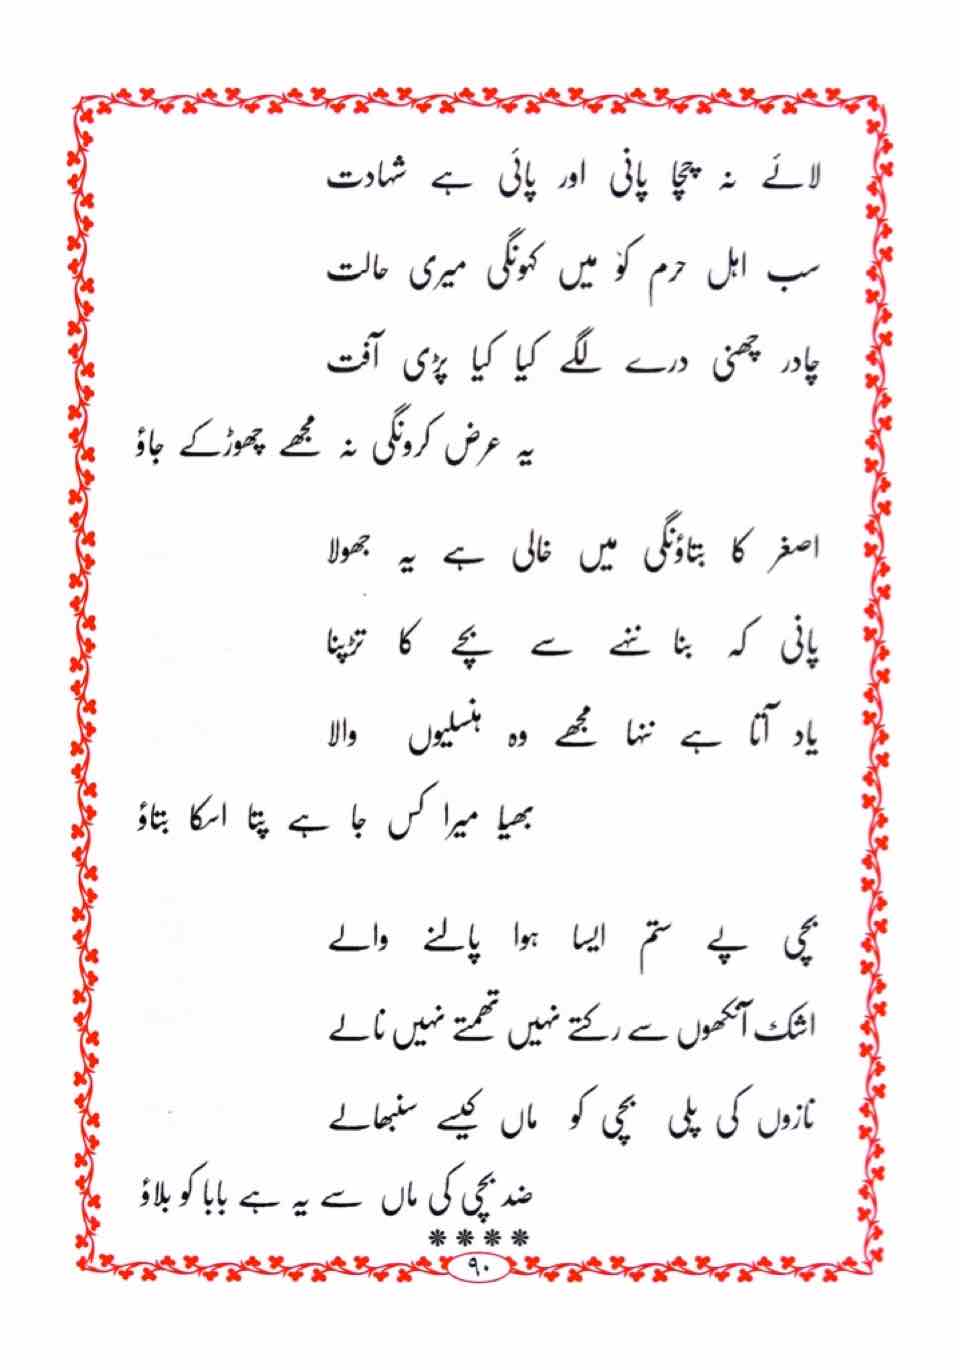 لائے نہ چچا پانی اور پائی ہے شہادت
سب اہل حرم کو میں کہونگی میری حالت
چادر چھنی درے لگے کیا کیا پڑی آفت
یہ عرض کرونگی نہ مجھے چھوڑکے جاؤ
اصغر کا بتاؤنگی میں خالی ہے یہ جھولا
پانی کہ بنا ننھے سے بچے کا تڑپنا
یاد آتا ہے ننھا مجھے وہ ہنسلیوں والا
بھیا میرا کس جا ہے پتا اسکا بتاؤ
بچی پے ستم ایسا ہوا پالنے والے
اشک آنکھوں سے رکتے نہیں تھمتے نہیں نالے
نازوں کی پلی بچی کو ماں کیسے سنبھالے
ضد بچی کی ماں سے یہ ہے بابا کو بلاؤ
****
۹۰